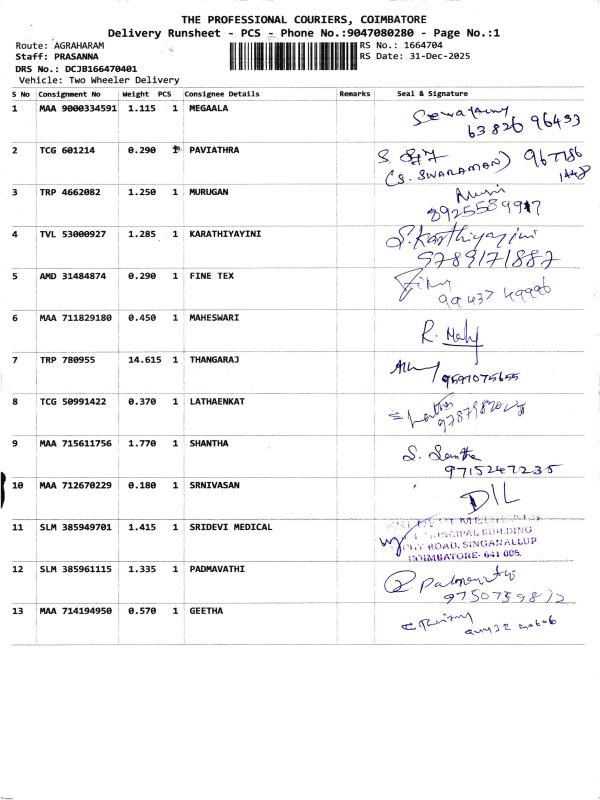 THE PROFESSIONAL COURIERS, COIMBATORE
Delivery Runsheet - PCS - Phone No.:9047080280 - Page No.:1
Route: AGRAHARAM RS No.: 1664704
Staff: PRASANNA RS Date: 31-Dec-2025
DRS No.: DCJB166470401
Vehicle: Two Wheeler Delivery
S No Consignment No Weight PCS Consignee Details Remarks Seal & Signature
1 MAA 9000334591 1.115 1 MEGAALA
63826 96433
2 TCG 601214 0.290 1 PAVIATHRA
(S. SWARAMAN)
3 TRP 4662082 1.250 1 MURUGAN
4 TVL 53000927 1.285 1 KARATHIYAYINI S. Karthiyayini
9789171887
5 AMD 31484874 0.290 1 FINE TEX
6 MAA 711829180 0.450 1 MAHESWARI
R.
7 TRP 780955 14.615 1 THANGARAJ
8 TCG 50991422 0.370 1 LATHAENKAT
9 MAA 715611756 1.770 1 SHANTHA S.
9715247235
10 MAA 712670229 0.180 1 SRNIVASAN DIL
11 SLM 385949701 1.415 1 SRIDEVI MEDICAL
BUILDING
ROAD, SINGANALLUP
COIMBATORE- 641 005.
12 SLM 385961115 1.335 1 PADMAVATHI
13 MAA 714194950 0.570 1 GEETHA